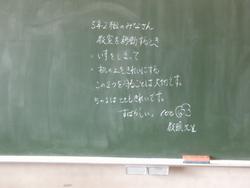 5年2組のみなさん
教室を移動するとき
・いすをしまって
・机の上をきれいにする
この2つを守ることは大切です。
ちゃんと とてもきれいです。
すばらしい。100
教頭先生